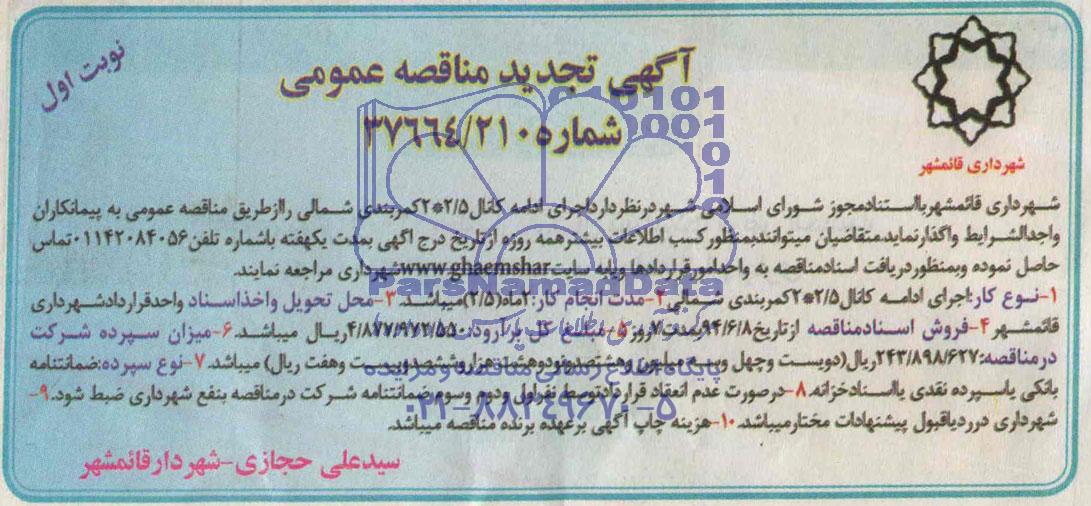 نوبت اول
آگهی تجدید مناقصه عمومی
شماره ۳۷۶۶۴/۲۱۰۵
شهرداری قائمشهر
شهرداری قائمشهربااستنادمجوز شورای اسلامی شهردرنظرداردادجرای ادامه کانال۲/۵*۲کمربندی شمالی راازطریق مناقصه عمومی به پیمانکاران
واجدالشرایط واگذارنماید.متقاضیان میتوانندبمنظورکسب اطلاعات بیشترهمه روزه ازتاریخ درج اگهی بمدت یکهفته باشماره تلفن۰۱۱۴۲۰۸۴۰۵۶تماس
حاصل نموده وبمنظوردریافت اسنادمناقصه به واحدامورقراردادهاوبابه سایتwww.ghaemsharشهرداری مراجعه نمایند.
۱-نوع کار:اجرای ادامه کانال۲/۵*۲کمربندی شمالی۲-مدت انجام کار:۲ماه(۲/۵)میباشد.۳-محل تحویل واخذاسناد واحدقراردادشهرداری
قائمشهر۴-فروش اسنادمناقصه ازتاریخ۹۴/۶/۸بمدت۷روز۵-مبلغ کل براورد:۴/۸۷۷/۹۷۲/۵۵۰ریال میباشد.۶-میزان سپرده شرکت
درمناقصه:۲۴۳/۸۹۸/۶۲۷ریال(دویست وچهل وسه میلیون وهشتصدونودوهشت هزاروششصدوبیست وهفت ریال) میباشد.۷-نوع سپرده:ضمانتنامه
بانکی یاسپرده نقدی یااسنادخزانه.۸-درصورت عدم انعقاد قراردادتوسط نفراول ودوم وسوم،ضمانتنامه شرکت درمناقصه بنفع شهرداری ضبط شود.۹-
شهرداری درردیاقبول پیشنهادات مختارمیباشد.۱۰-هزینه چاپ آگهی برعهده برنده مناقصه میباشد.
سیدعلی حجازی-شهردارقائمشهر
ParsNamadData
پایگاه اطلاع رسانی مناقصه و مزایده
۰۲۱-۸۸۳۴۹۶۷۰-۵